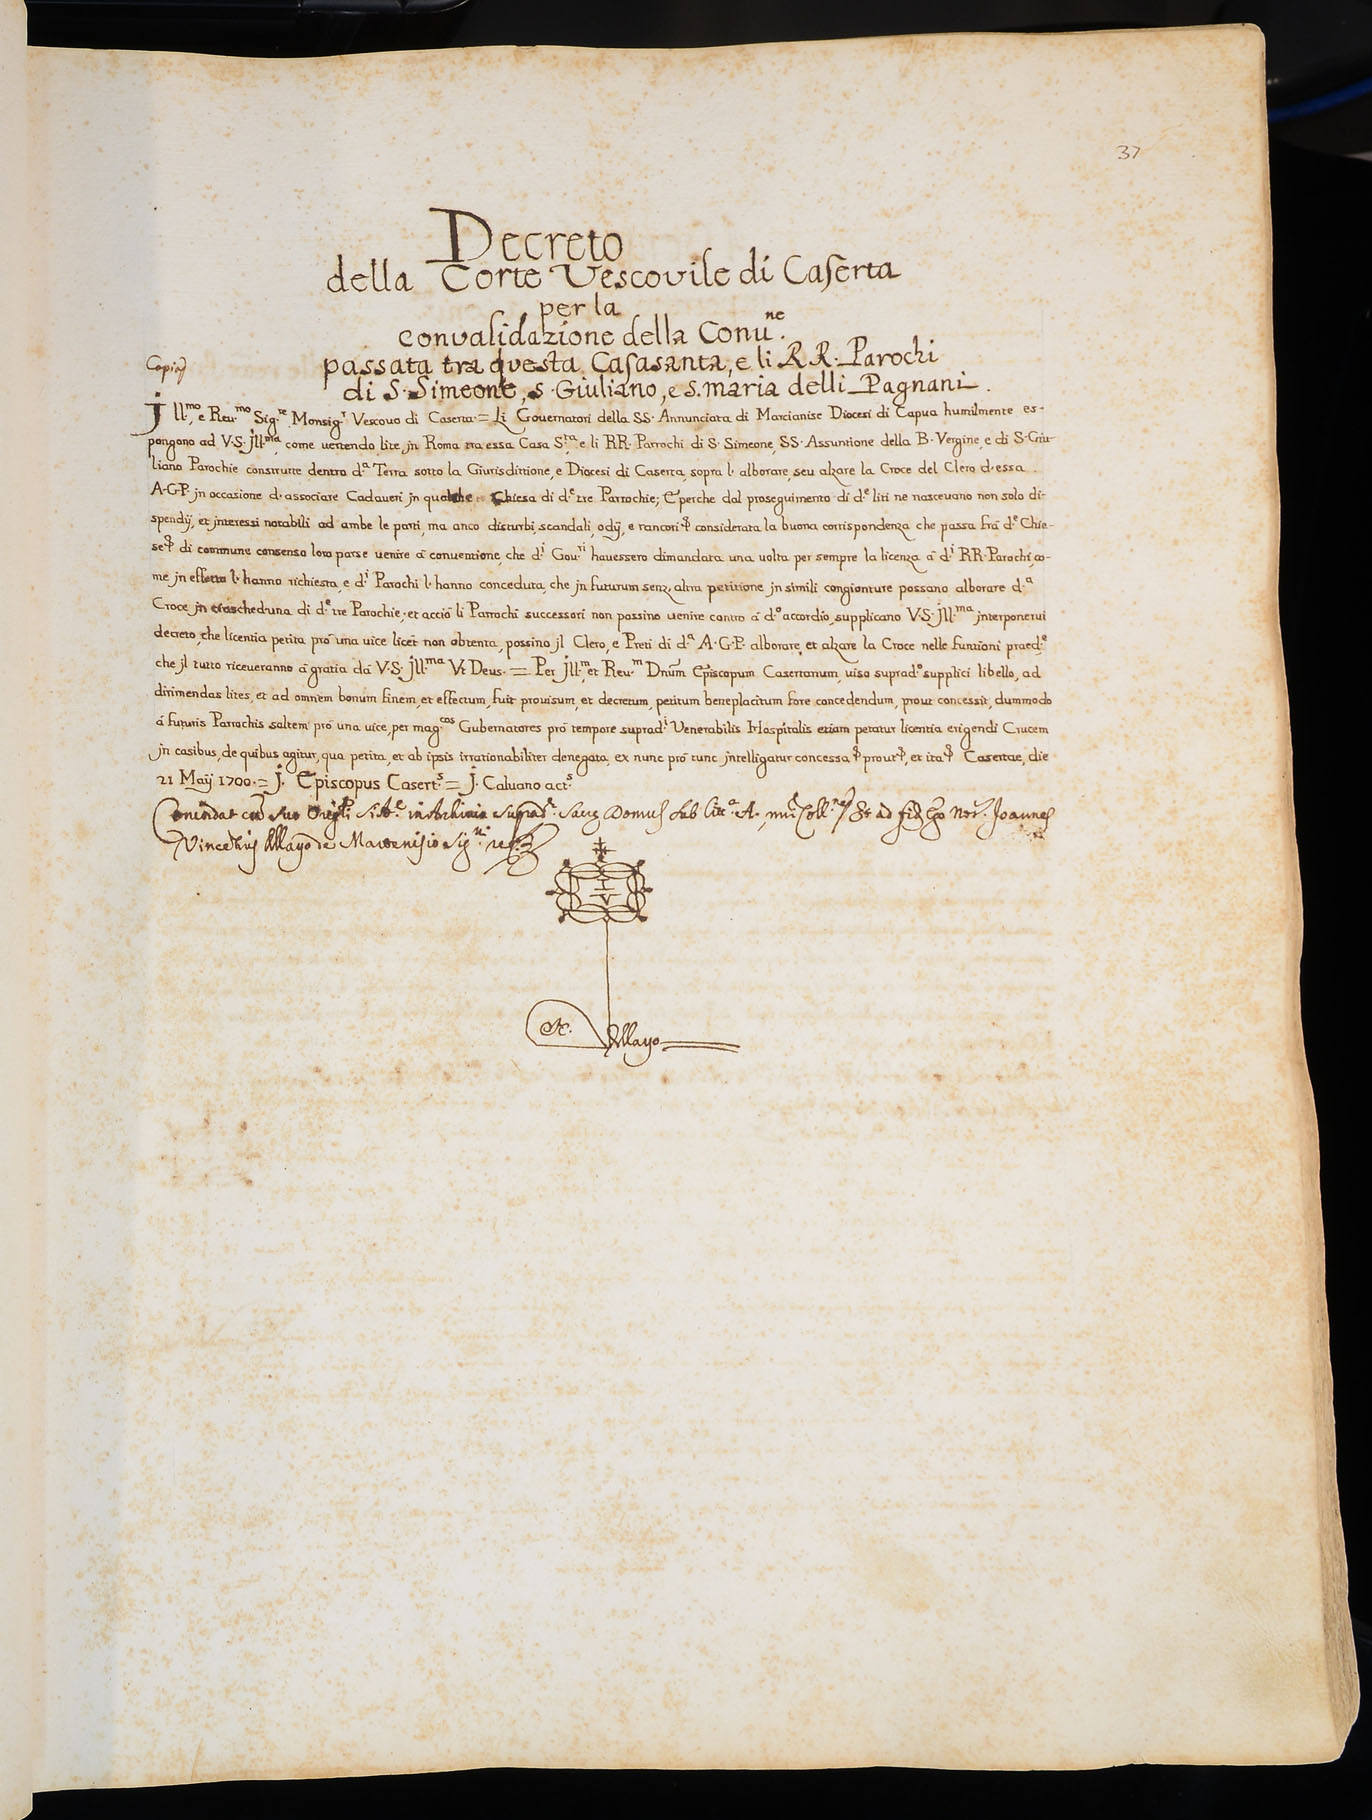 37
Decreto
della Corte Vescovile di Caserta
per la
convalidazione della Conu.ne
passata tra questa Casasanta, e li R.R. Parochi
di S. Simeone, S. Giuliano, e S. Maria delli Pagnani.
Copia
Jll.mo, e Reu.mo Sig.re Monsig.r Vescouo di Caserta = Li Gouernatori della SS. Annunciata di Marcianise Diocesi di Capua humilmente es-
pongono ad V.S. Jll.ma, come uertendo lite jn Roma tra essa Casa S.ta, e li RR. Parrochi di S. Simeone, SS. Assuntione della B. Vergine, e di S. Giu-
liano Parochie construtte dentro d.a Terra sotto la Giurisdittione, e Diocesi di Caserta, sopra l'alborare, seu alzare la Croce del Clero d'essa
A.G.P. jn occasione d'associare Cadaueri jn qualche Chiesa di d.e tre Parrochie; E perche dal proseguimento di d.e liti ne nasceuano non solo di-
spendij, et jnteressi notabili ad ambe le parti, ma anco disturbi, scandali, odij, e rancori; considerata la buona corrispondenza che passa frà d.e Chie-
se; di commune consenso loro parse uenire à conuentione, che d.i Gou.ri hauessero dimandata una uolta per sempre la licenza à d.i RR. Parochi, co-
me jn effetto l'hanno richiesta, e d.i Parochi l'hanno conceduta, che jn futurum senz'altra petitione jn simili congionture possano alborare d.a
Croce jn ciascheduna di d.e tre Parochie; et acciò li Parrochi successori non possino uenire contro à d.o accordio, supplicano V.S. Jll.ma jnterponerui
decreto, che licentia petita prò una uice licèt non obtenta, possino jl Clero, e Preti di d.a A.G.P. alborare, et alzare la Croce nelle funtioni praed.e
che jl tutto riceueranno à gratia dà V.S. Jll.ma Vt Deus. = Per Jll.m, et Reu.m Dnūm Episcopum Casertanum, uiso suprad.o supplici libello, ad
dirimendas lites, et ad omnem bonum finem, et effectum, fuit prouisum, et decretum, petitum beneplacitum fore concedendum, prout concessit, dummodo
à futuris Parrochis saltem prò una uice, per mag.cos Gubernatores prò tempore suprad.i Venerabilis Hospitalis etiam petatur licentia erigendi Crucem
jn casibus, de quibus agitur, qua petita, et ab ipsis irrationabiliter denegata, ex nunc prò tunc jntelligatur concessa; prout; et ita; Casertae, die
21 Maij 1700. = J. Episcopus Casert.s = J. Caluano act.s
in Archiuio suprad. Sacrae Domus sub litt.a A. Et ad fidem ego Not.r Joannes
Vincentius Mayo de Marcenisio
I
V
A.
Mayo